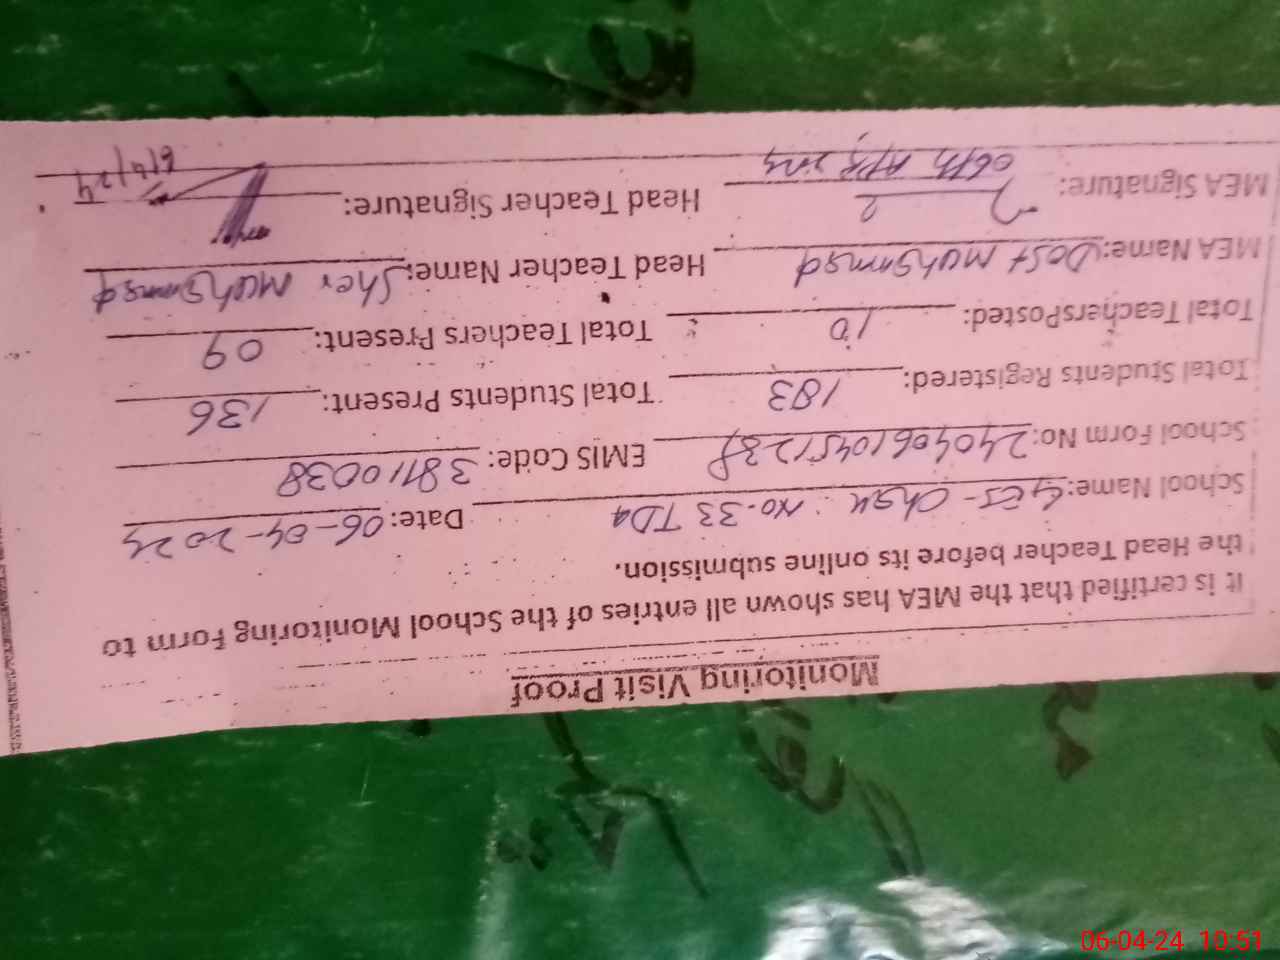 Monitoring Visit Proof
It is certified that the MEA has shown all entries of the School Monitoring Form to
the Head Teacher before its online submission.
School Name: GES- Chak No. 33 TDA Date: 06-04-2024
School Form No: EMIS Code: 38110038
Total Students Registered: 183 Total Students Present: 136
Total TeachersPosted: 10 Total Teachers Present: 09
MEA Name: Dost Muhammad Head Teacher Name: Sher Muhammad
MEA Signature: 06th Apr, 2024 Head Teacher Signature: 6/4/24
06-04-24 10:51